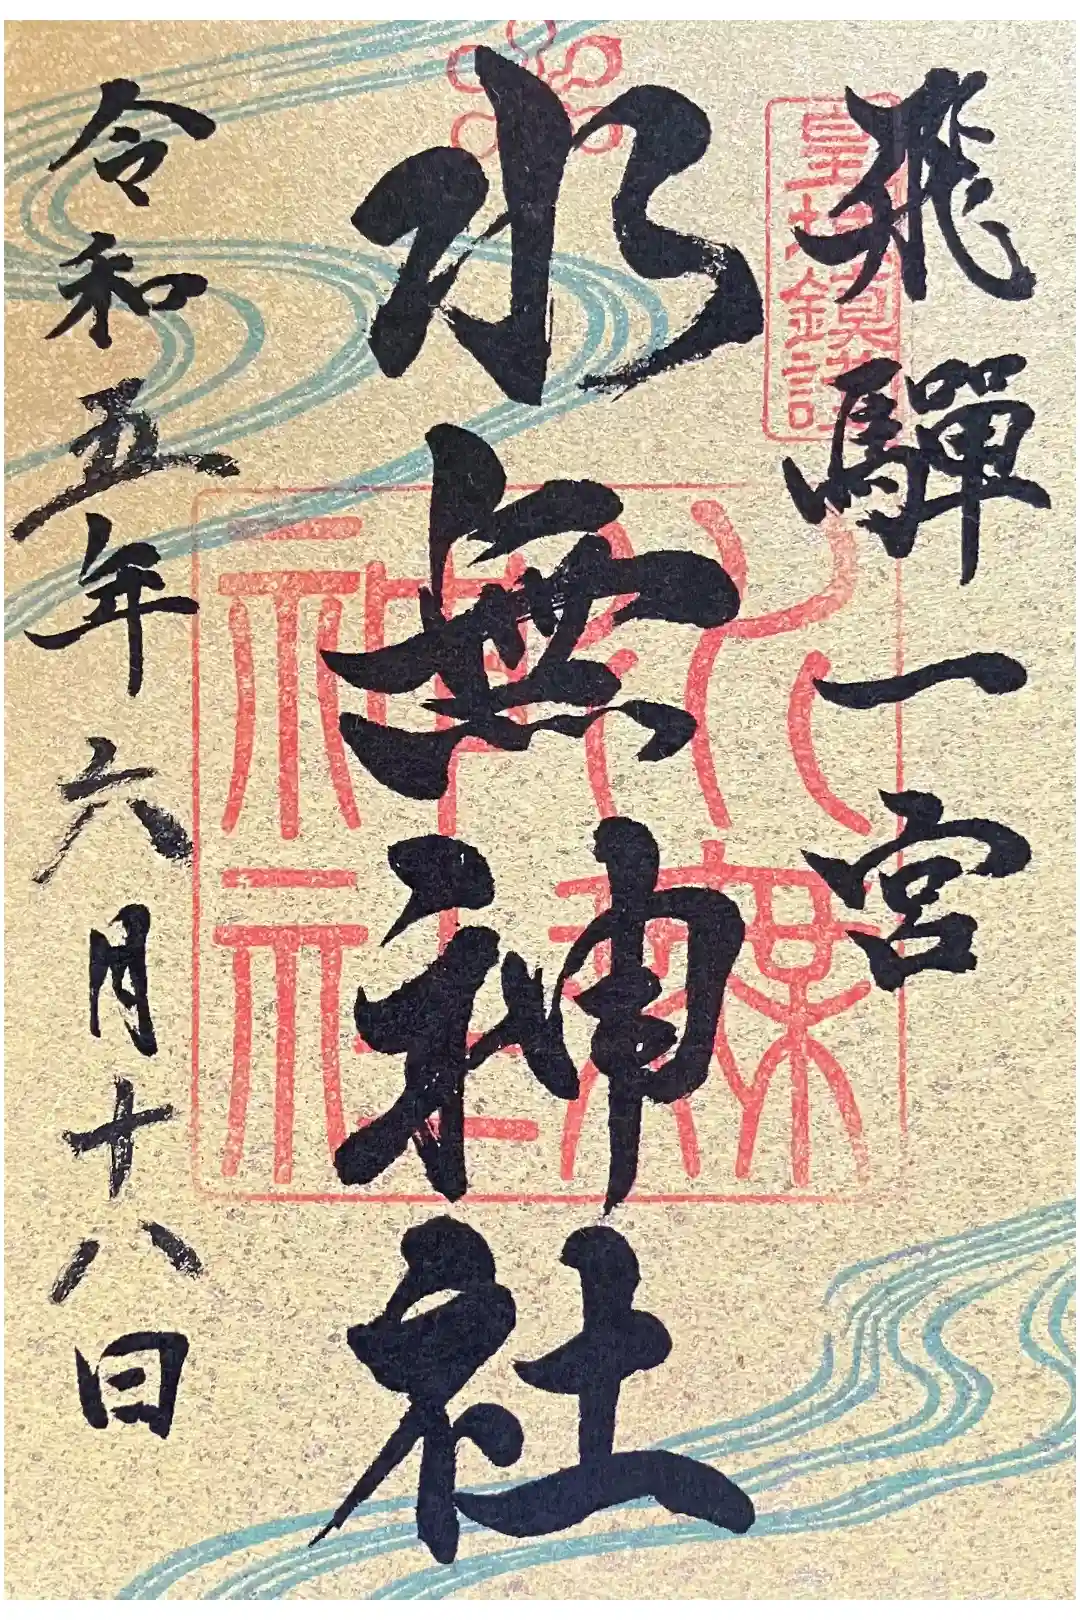 飛騨一宮
水無神社
令和五年六月十八日
水無神社